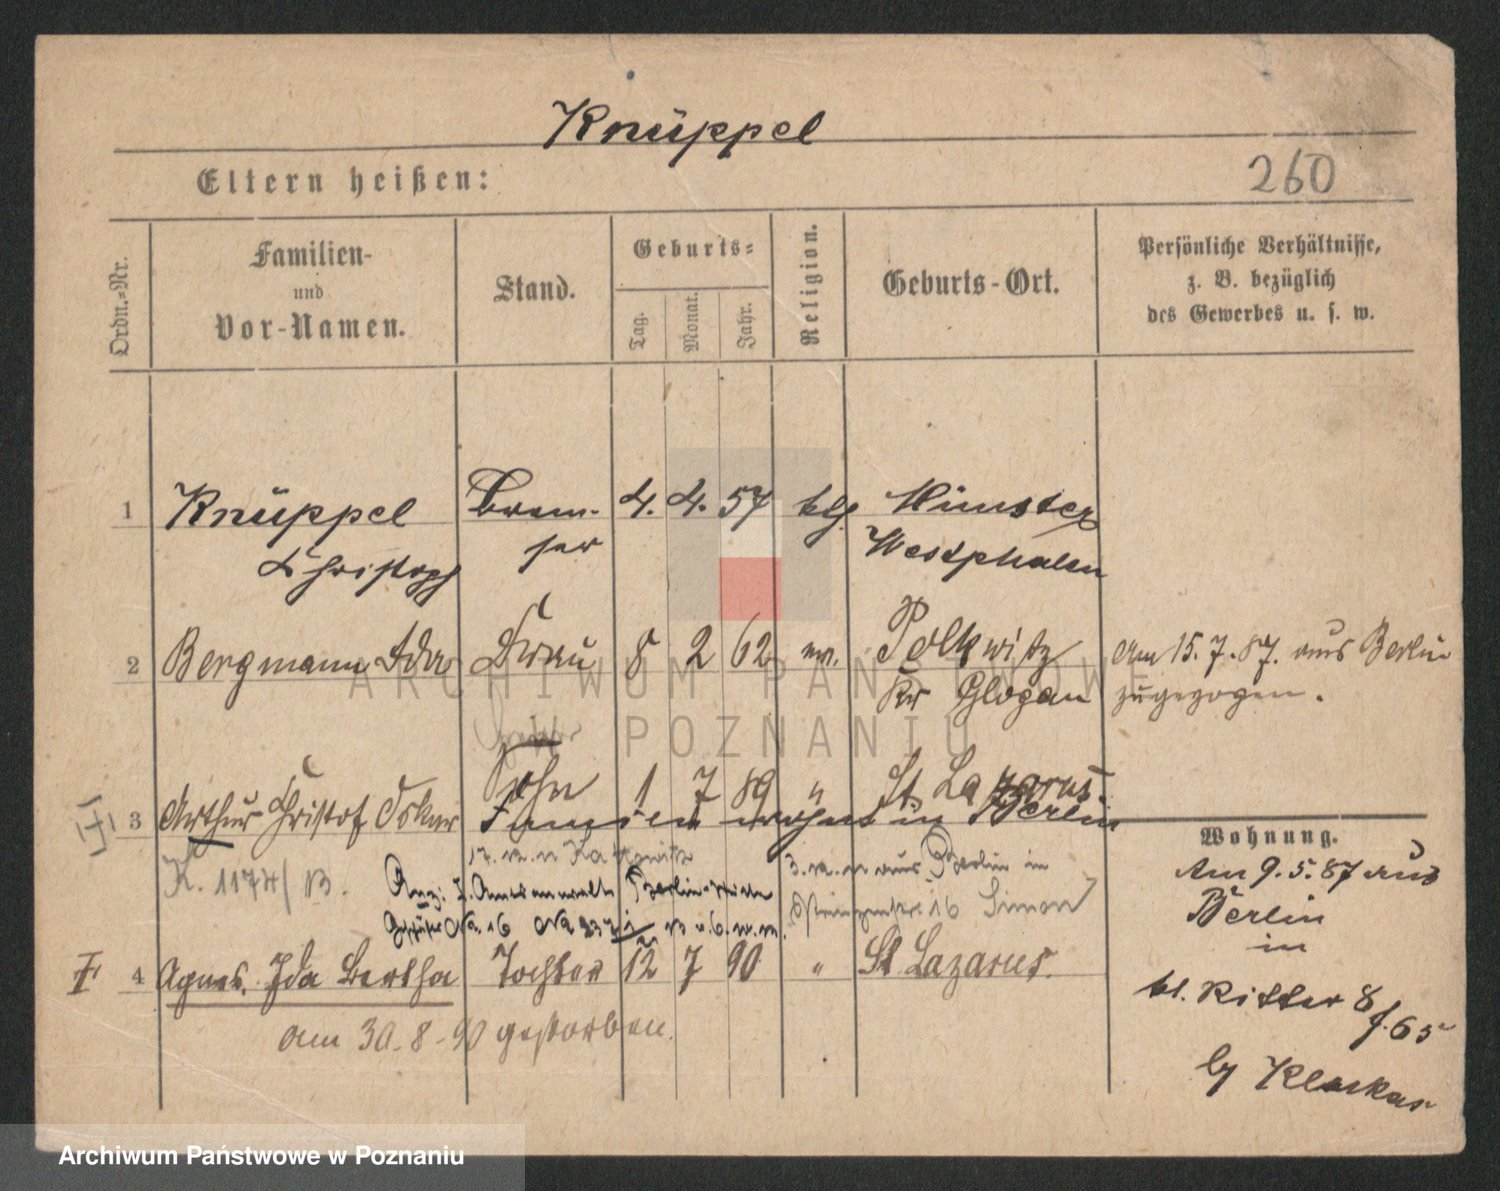 Knüppel
Eltern heißen:
260
Ordn.-Nr.
Familien-
und
Vor-Namen.
Stand.
Geburts-
Tag.
Monat.
Jahr.
Religion.
Geburts-Ort.
Persönliche Verhältnisse,
z. B. bezüglich
des Gewerbes u. s. w.
1 Knüppel Brem- 4. 4. 57 ktl. Münster
Christoph ser Westphalen
2 Bergmann Ida Frau 8 2 62 ev. Polkwitz Am 15.7.87. aus Berlin
Kr Glogau zugezogen.
3 Arthur Christof Oskar Sohn 1 7 89 " St. Lazarus.
wohnt in Berlin
K. 1174/ B.
17. n. Kattowitz
3. aus Berlin in
Anz: Amtsanwalt Berlin
16 Simon
4 Agnes. Ida Bertha Tochter 12 7 90 " St Lazarus.
am 30-8-90 gestorben.
Wohnung.
Am 9.5.87 aus
Berlin
in
kl. Ritter 8
f. 65
by
ARCHIWUM PAŃSTWOWE
W POZNANIU
Archiwum Państwowe w Poznaniu